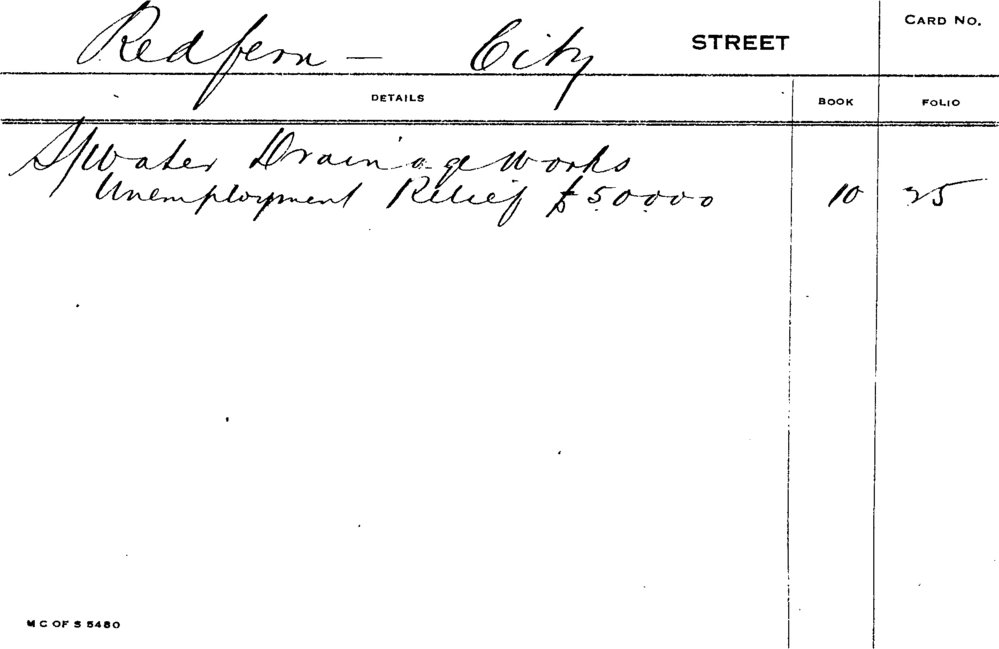 Redfern - City STREET CARD NO.
DETAILS BOOK FOLIO
S/Water Drainage Works
Unemployment Relief £50000 10 25
M C OF S 5480